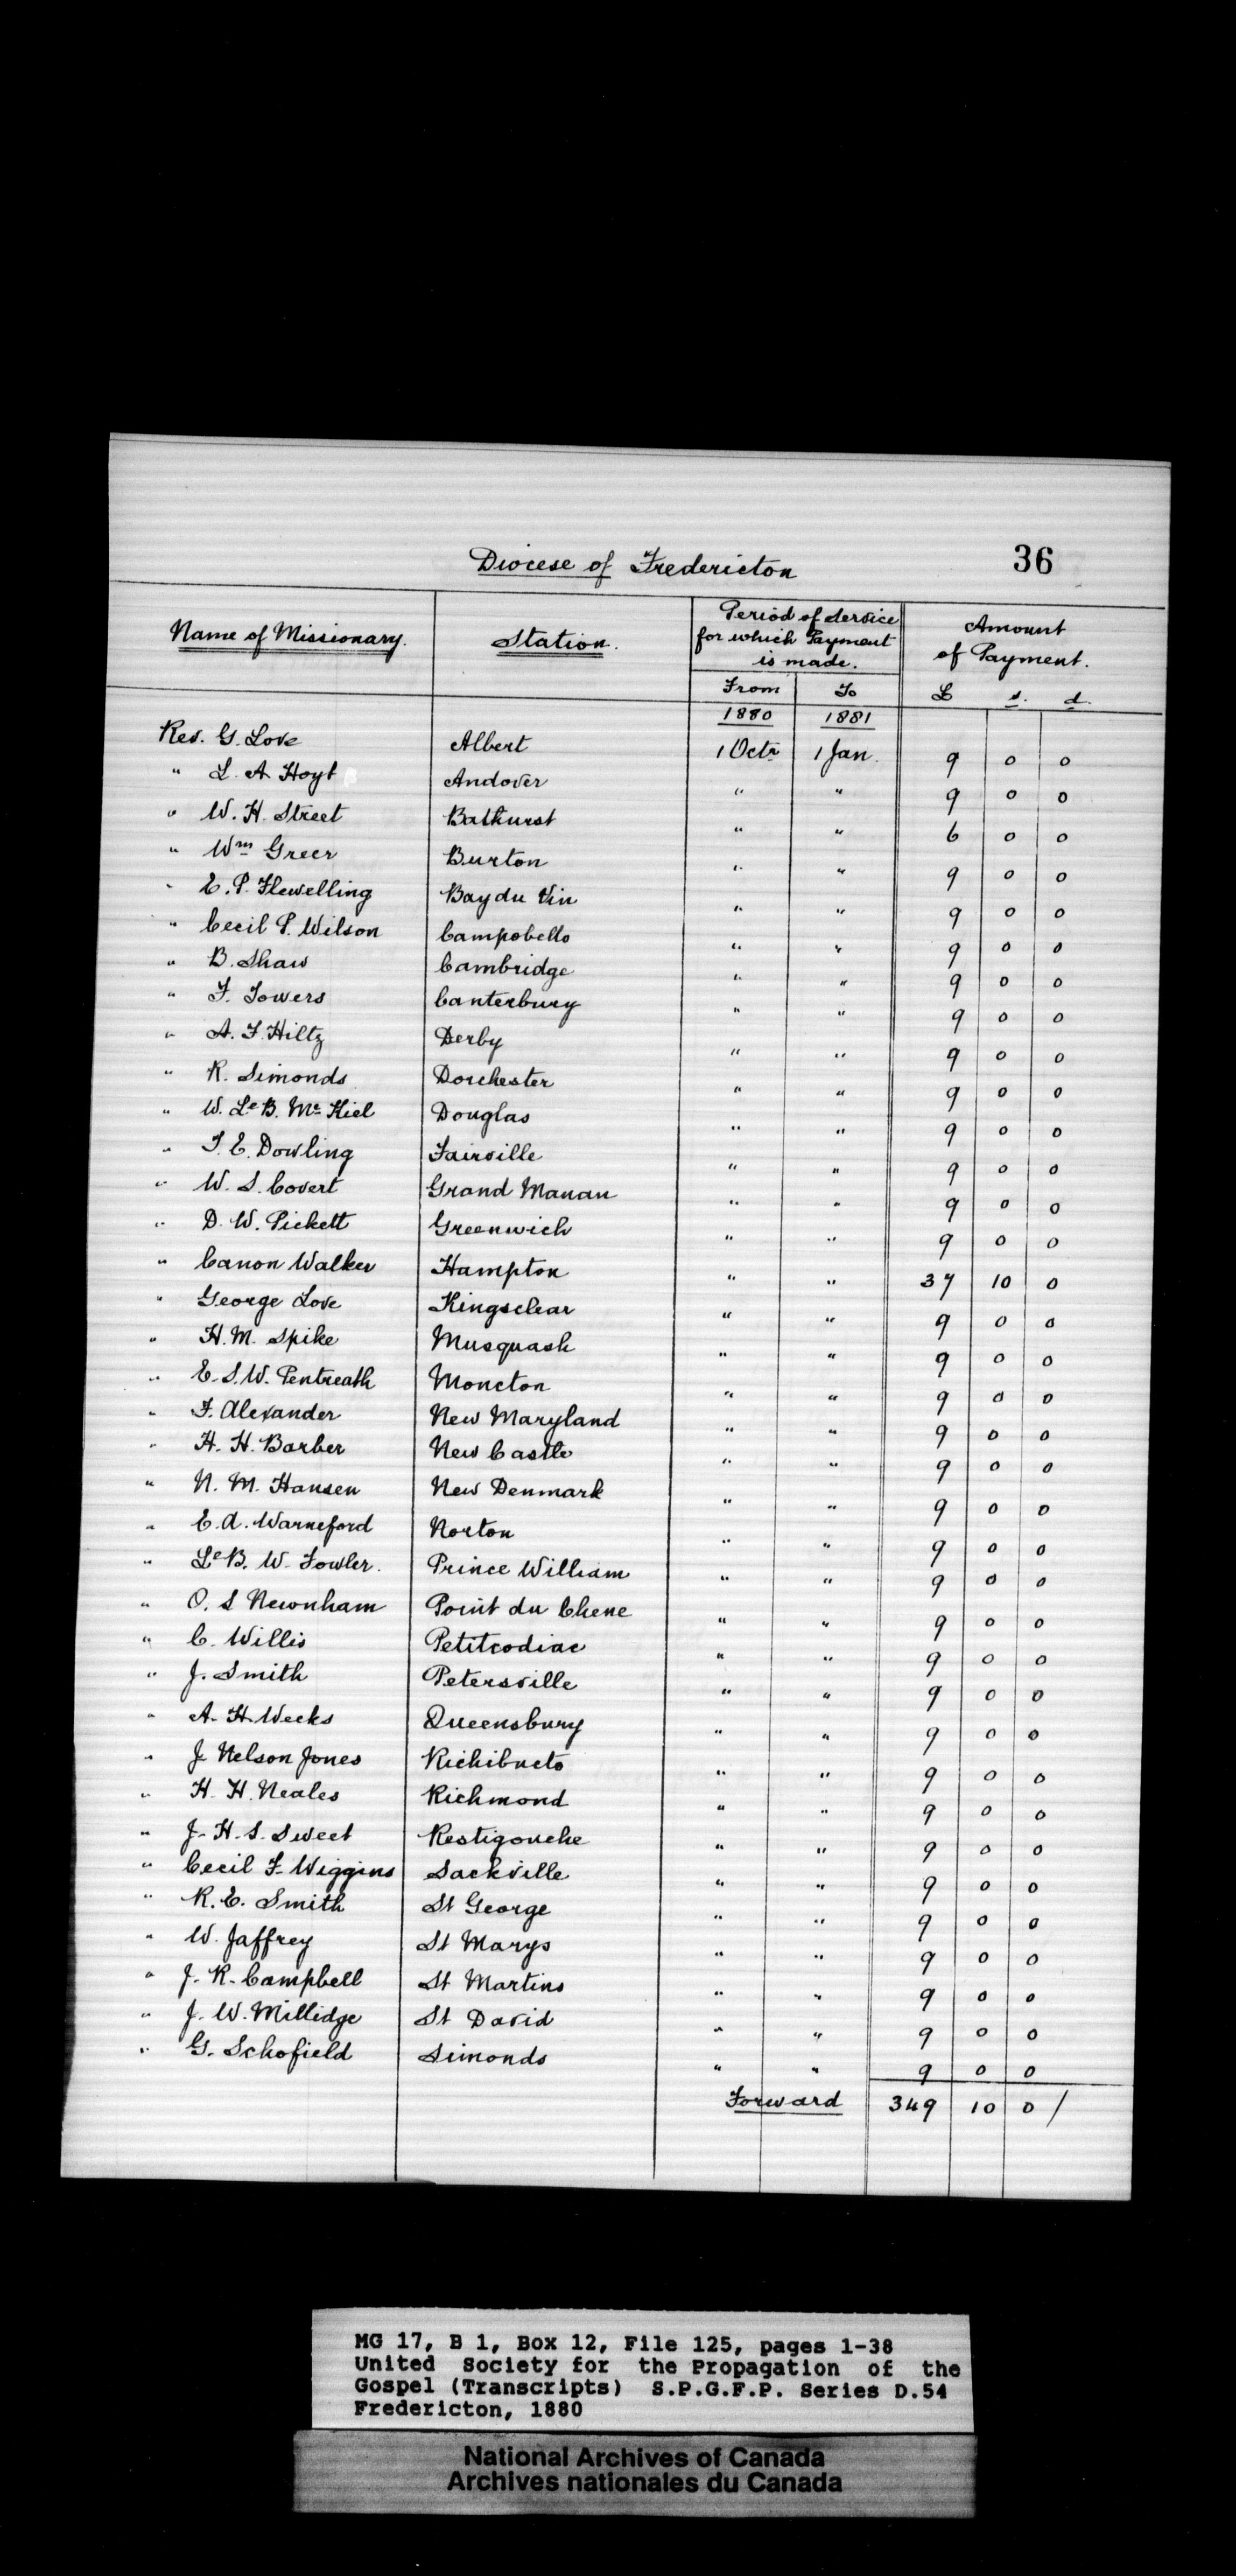 Diocese of Fredericton
36
Name of Missionary. Station. Period of Service for which Payment is made. Amount of Payment.
From To £ s. d.
1880 1881
Rev. G. Love Albert 1 Octr 1 Jan. 9 0 0
" L. A Hoyt Andover " " 9 0 0
" W. H. Street Bathurst " " 6 0 0
" Wm Greer Burton " " 9 0 0
" E. P. Flewelling Bay du Vin " " 9 0 0
" Cecil P. Wilson Campobello " " 9 0 0
" B. Shaw Cambridge " " 9 0 0
" F. Towers Canterbury " " 9 0 0
" A. F. Hiltz Derby " " 9 0 0
" R. Simonds Dorchester " " 9 0 0
" W. Le B. Mc Kiel Douglas " " 9 0 0
" T. E. Dowling Fairville " " 9 0 0
" W. S. Covert Grand Manan " " 9 0 0
" D. W. Pickett Greenwich " " 9 0 0
" Canon Walker Hampton " " 37 10 0
" George Love Kingsclear " " 9 0 0
" H. M. Spike Musquash " " 9 0 0
" E. S. W. Pentreath Moncton " " 9 0 0
" F. Alexander New Maryland " " 9 0 0
" H. H. Barber New Castle " " 9 0 0
" N. M. Hansen New Denmark " " 9 0 0
" E. A. Warneford Norton " " 9 0 0
" Le B. W. Fowler. Prince William " " 9 0 0
" O. S Newnham Point du Chene " " 9 0 0
" C. Willis Petitcodiac " " 9 0 0
" J. Smith Petersville " " 9 0 0
" A. H. Weeks Queensbury " " 9 0 0
" J Nelson Jones Richibucto " " 9 0 0
" H. H. Neales Richmond " " 9 0 0
" J. H. S. Sweet Restigouche " " 9 0 0
" Cecil F. Wiggins Sackville " " 9 0 0
" R. E. Smith St George " " 9 0 0
" W. Jaffrey St Marys " " 9 0 0
" J. R. Campbell St Martins " " 9 0 0
" J. W. Millidge St David " " 9 0 0
" G. Schofield Simonds " " 9 0 0
Forward 349 10 0 /
MG 17, B 1, Box 12, File 125, pages 1-38
United Society for the Propagation of the
Gospel (Transcripts) S.P.G.F.P. Series D.54
Fredericton, 1880
National Archives of Canada
Archives nationales du Canada